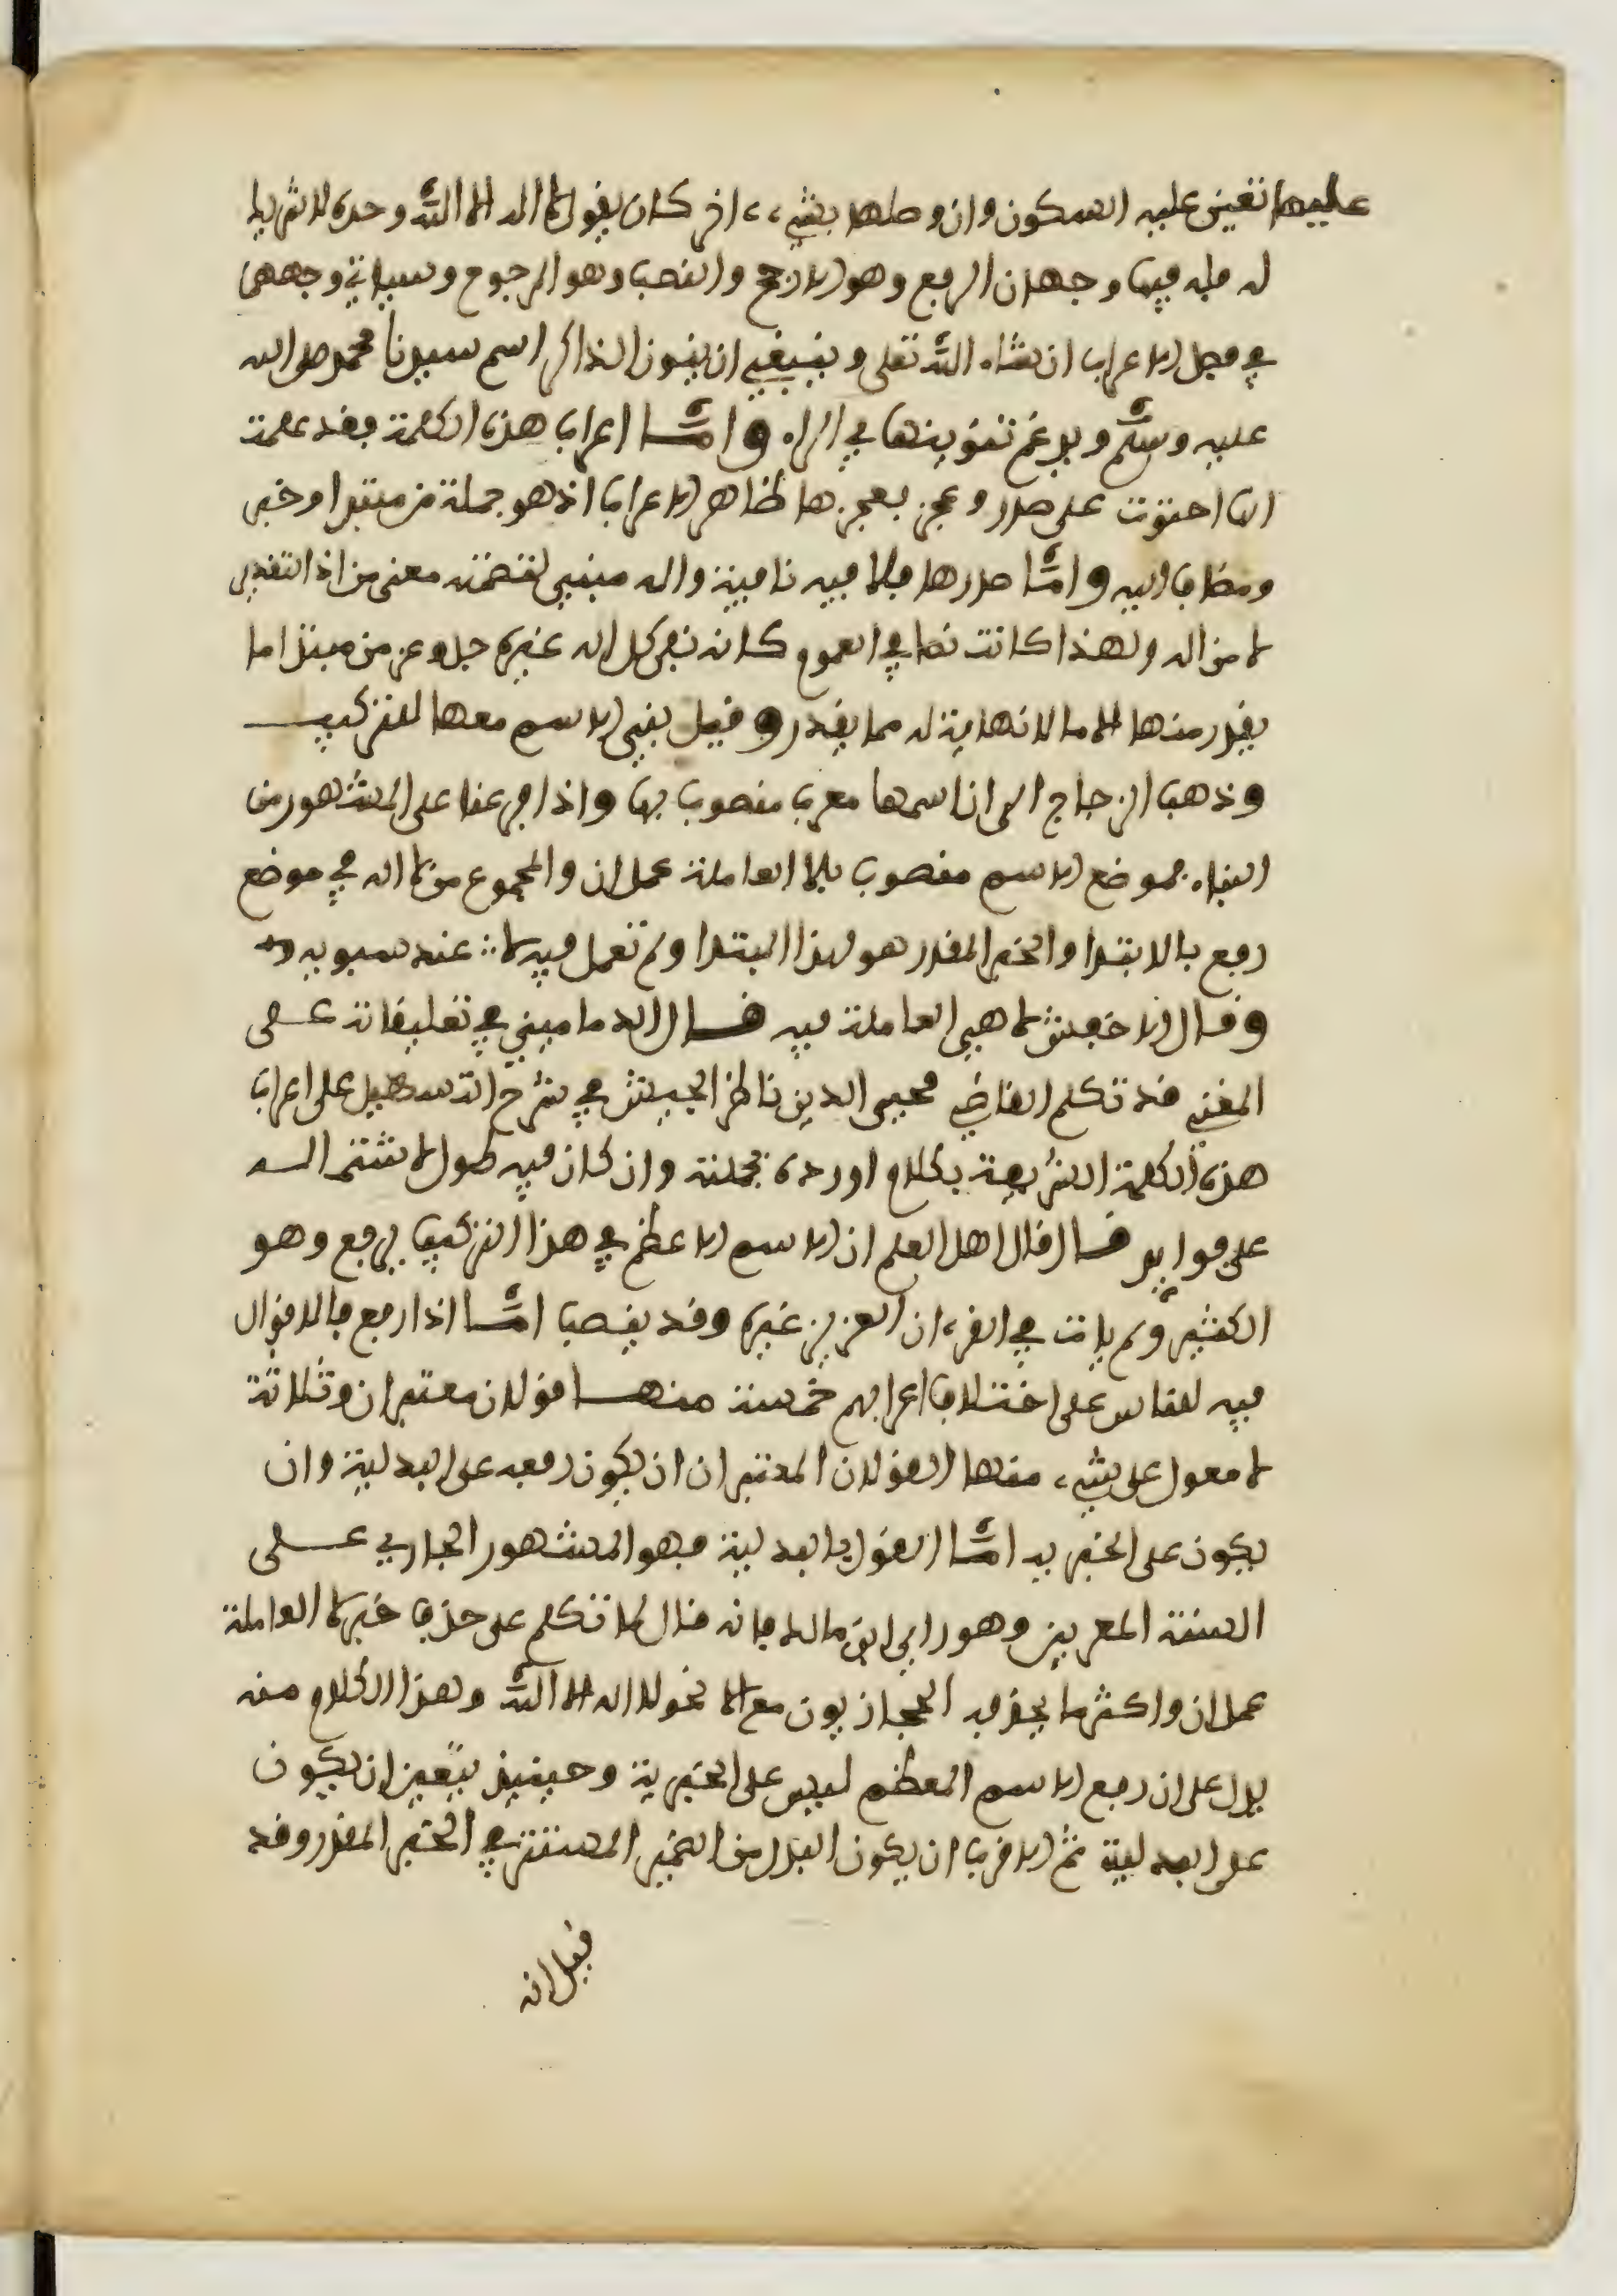 عليها تعين عليه السكون وان وصلها بشيء ءاخر كان يقول لا اله الا الله وحده لا شريك
له فله فيها وجهان الرفع وهو الارجح والنصب وهو المرجوح وسياتي وجههما
في فصل الاعراب ان شاء الله تعلى وينبغي ان ينون الذاكر اسم سيدنا محمد صلى الله
عليه وسلم ويدغم تنوينها في الراء واما اعراب هذه الكلمة فقد علمت
انها احتوت على صدر وعجز فعجزها ظاهر الاعراب اذ هو جملة من مبتدا وخبر
ومضاف اليه واما صدرها فلا فيه نافية واله مبني لتضمنه معنى من اذ التقدير
لا من اله ولهذا كانت نصا في العموم كانه نفى كل اله غيره جل وعز من مبتدا ما
يقدر منها الى ما لا نهاية له مما يقدر وقيل بني الاسم معها للتركيب
وذهب الزجاج الى ان اسمها معرب منصوب بها واذا فرعنا على المشهور من
البناء فموضع الاسم منصوب بلا العاملة عمل ان والمجموع من لا اله في موضع
رفع بالابتدا والخبر المقدر هو لهذا المبتدا ولم تعمل فيه لا عند سيبويه
وقال الاخفش لا هي العاملة فيه قال الدماميني في تعليقاته على
المغني قد تكلم القاضي محيي الدين ناظر الجيش في شرح التسهيل على اعراب
هذه الكلمة الشريفة بكلام اورده بجملته وان كان فيه طول لاشتماله
على فوايد قال قال اهل العلم ان الاسم الاعظم في هذا التركيب يرفع وهو
الكثير ولم يات في القرءان العزيز غيره وقد ينصب اما اذا رفع فالاقوال
فيه للناس على اختلاف اعرابهم خمسة منها قولان معتبران وثلاثة
لا معول على شيء منها القولان المعتبران ان يكون رفعه على البدلية وان
يكون على الخبرية اما القول بالبدلية فهو المشهور الجاري على
السنة المعربين وهو راي ابن مالك فانه قال لما تكلم على حذف خبر لا العاملة
عمل ان واكثر ما يحذفه الحجازيون مع الا نحو لا اله الا الله وهذا الكلام منه
يدل على ان رفع الاسم المعظم ليس على الخبرية وحينيذ يتعين ان يكون
على البدلية ثم الاقرب ان يكون البدل من الضمير المستتر في الخبر المقدر وقد
قيل انه